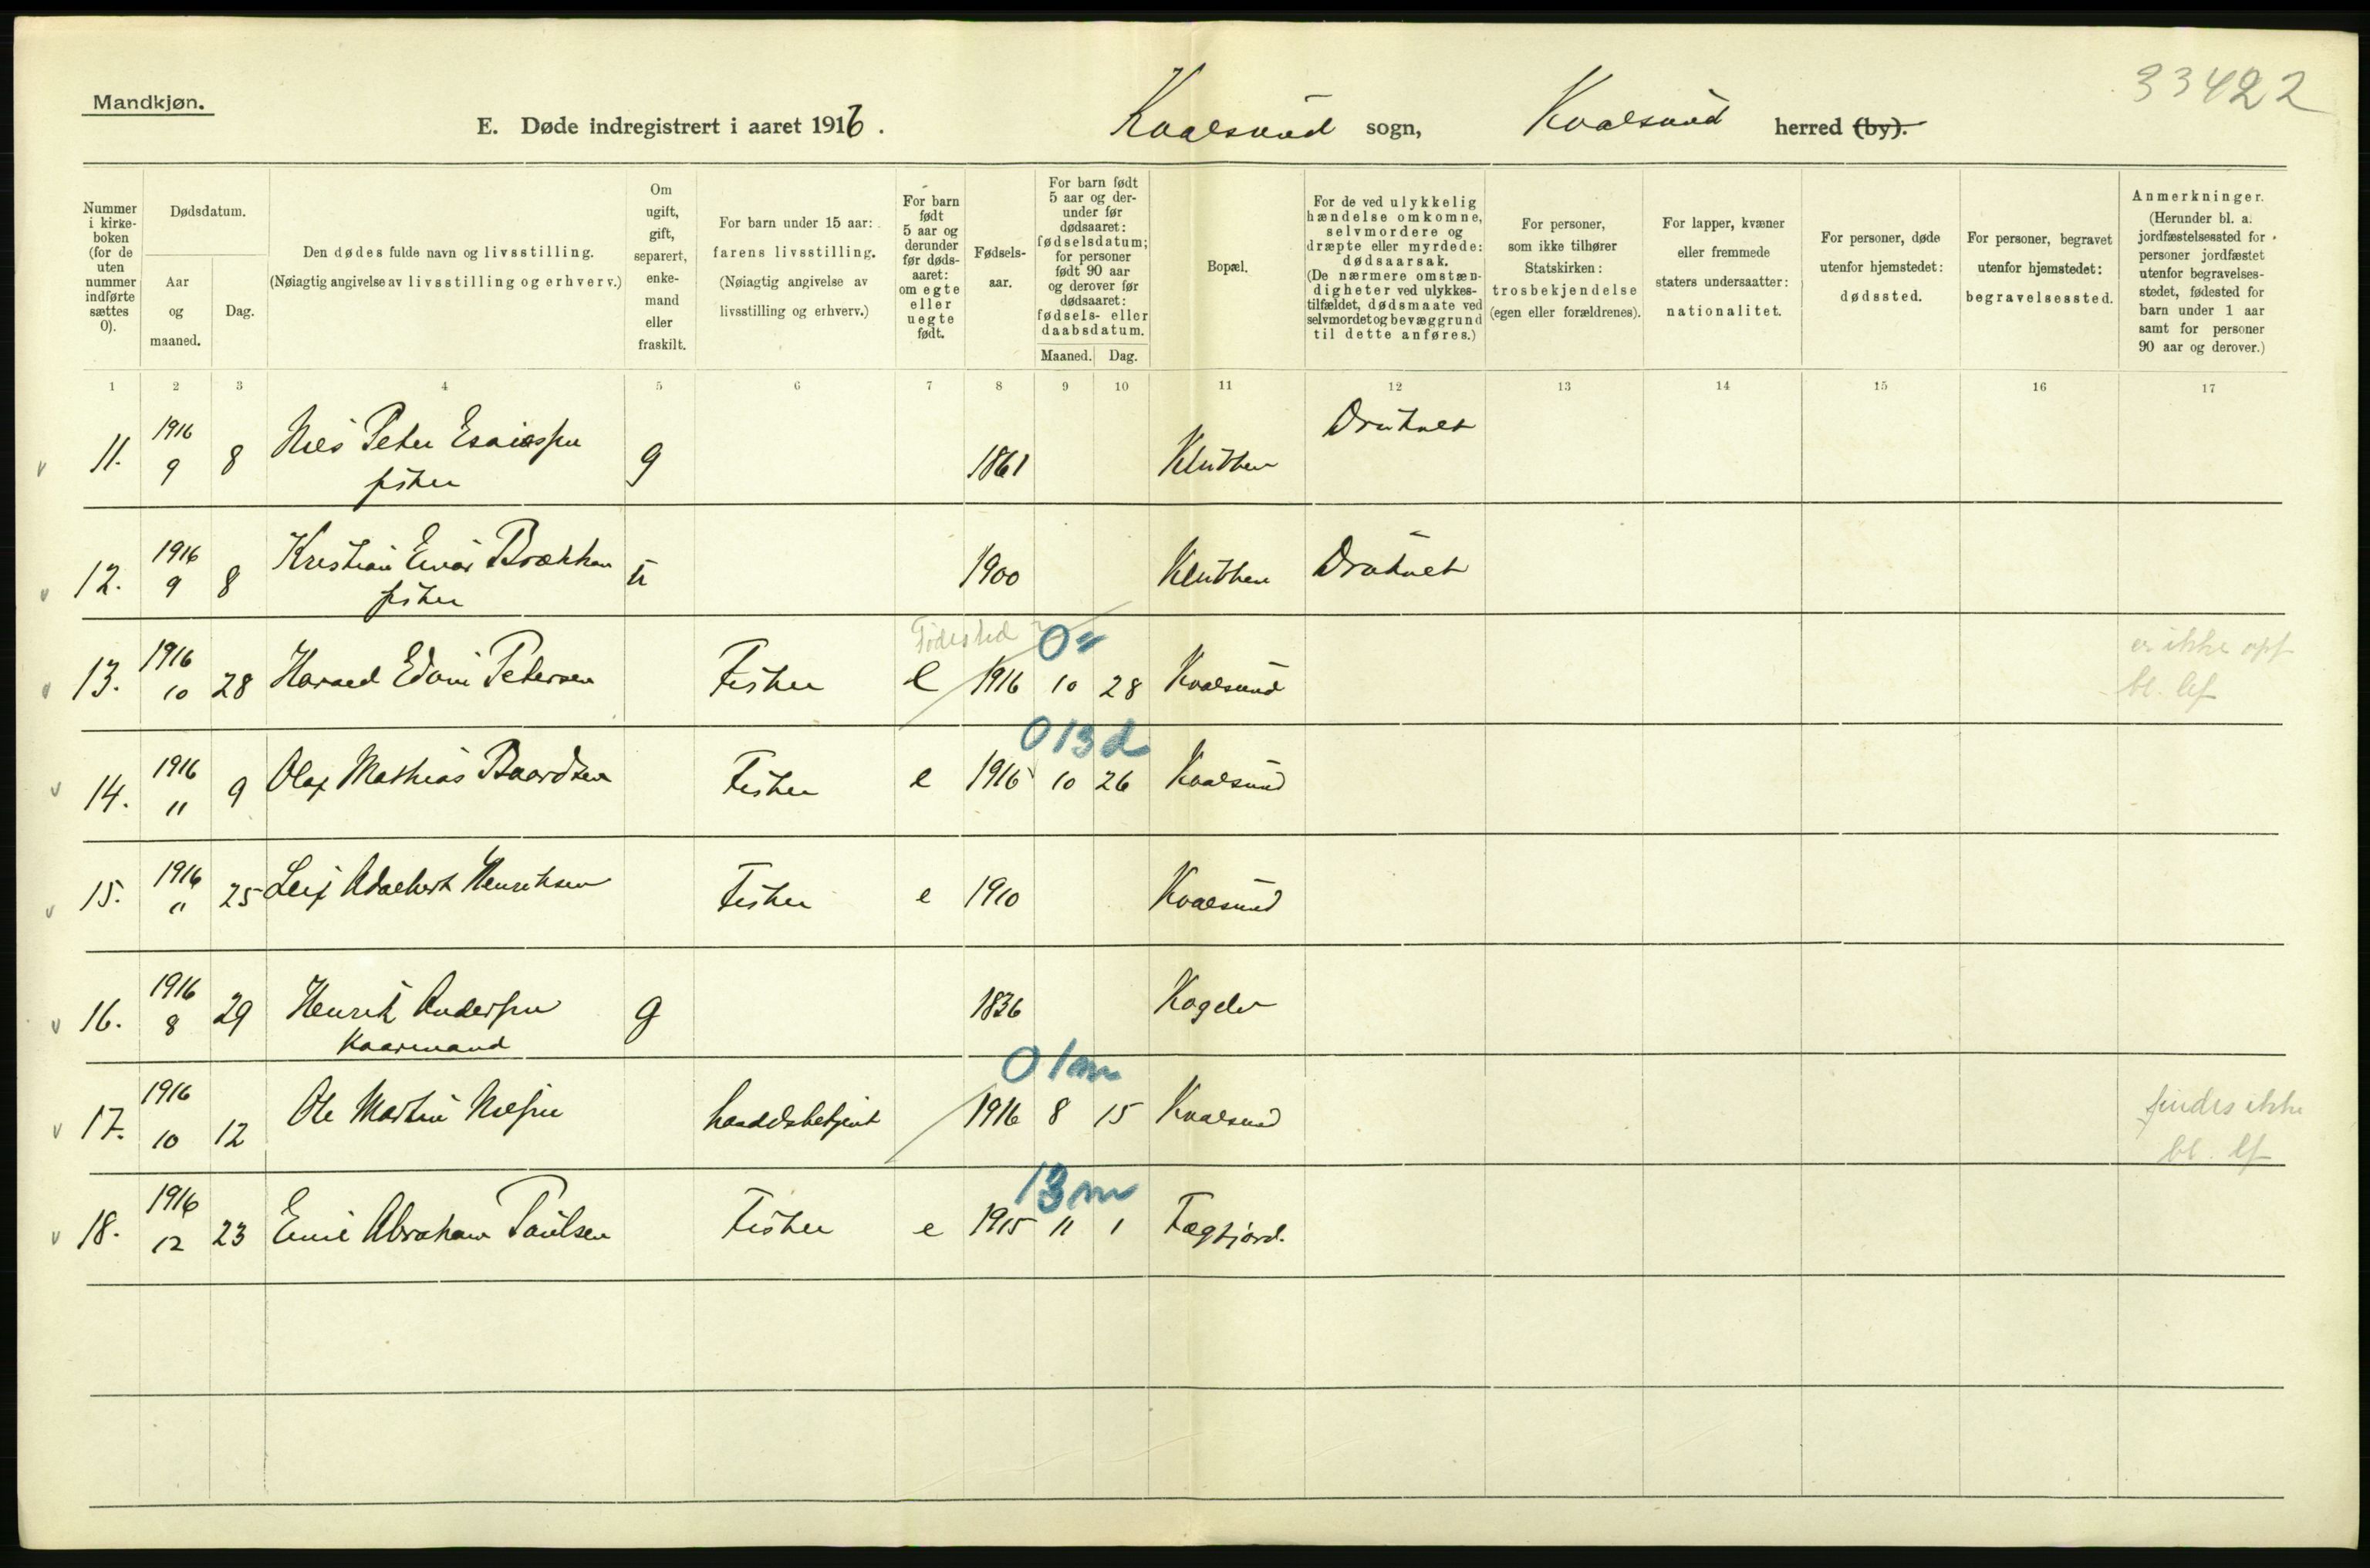 33422
Mandkjøn.
E. Døde indregistrert i aaret 1916. Kvalsund sogn, Kvalsund herred (by).
Nummer i kirke-boken (for de uten nummer indførte sættes 0).
Dødsdatum.
Aar og maaned.
Dag.
Den dødes fulde navn og livsstilling.
(Nøiagtig angivelse av livsstilling og erhverv.)
Om ugift, gift, separert, enke-mand eller fraskilt.
For barn under 15 aar: farens livsstilling.
(Nøiagtig angivelse av livsstilling og erhverv.)
For barn født 5 aar og derunder før døds-aaret: om egte eller uegte født.
Fødsels-aar.
For barn født 5 aar og der-under før dødsaaret: fødselsdatum; for personer født 90 aar og derover før dødsaaret: fødsels- eller daabsdatum.
Maaned. Dag.
Bopæl.
For de ved ulykkelig hændelse omkomne, selvmordere og dræpte eller myrdede: dødsaarsak.
(De nærmere omstæn-digheter ved ulykkes-tilfældet, dødsmaate ved selvmordet og bevæggrund til dette anføres.)
For personer, som ikke tilhører Statskirken: trosbekjendelse (egen eller forældrenes).
For lapper, kvæner eller fremmede staters undersaatter: nationalitet.
For personer, døde utenfor hjemstedet: dødssted.
For personer, begravet utenfor hjemstedet: begravelsessted.
Anmerkninger.
(Herunder bl. a. jordfæstelsessted for personer jordfæstet utenfor begravelses-stedet, fødested for barn under 1 aar samt for personer 90 aar og derover.)
1 2 3 4 5 6 7 8 9 10 11 12 13 14 15 16 17
v 11. 1916 9 8 Nils Peter Esaiassen g 1861 Klubben Druknet
fisker
v 12. 1916 9 8 Kristian Einar Brækkan u 1900 Klubben Druknet
fisker
Fødested ? 0"
v 13. 1916 10 28 Harald Edvin Petersen Fisker e 1916 10 28 Kvalsund er ikke opf
bl. lef
0 13 d
v 14. 1916 11 9 Olaf Mathias Baardsen Fisker e 1916 10 26 Kvalsund
v 15. 1916 11 25 Leif Adalbert Henriksen Fisker e 1910 Kvalsund
v 16. 1916 8 29 Henrik Andersen g 1836
Kaarmand
0 1 m
v 17. 1916 10 12 Ole Martin Nilsen handelsbetjent 1916 8 15 Kvalsund findes ikke
bl. lf
13 m
v 18. 1916 12 23 Emil Abraham Paulsen Fisker e 1915 11 1 Fægfjord.